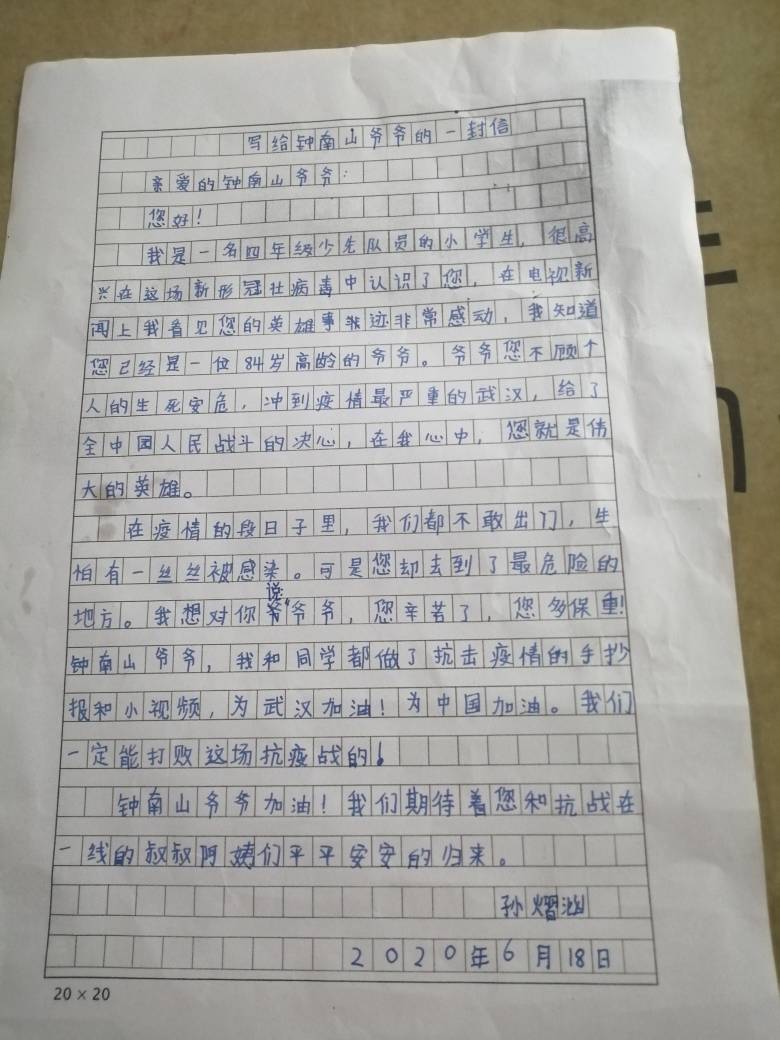 写给钟南山爷爷的一封信
亲爱的钟南山爷爷：
您好！
我是一名四年级少先队员的小学生，很高
兴在这场新形冠壮病毒中认识了您，在电视新
闻上我看见您的英雄事迹非常感动，我知道
您已经是一位84岁高龄的爷爷。爷爷您不顾个
人的生死安危，冲到疫情最严重的武汉，给了
全中国人民战斗的决心，在我心中，您就是伟
大的英雄。
在疫情的段日子里，我们都不敢出门，生
怕有一丝丝被感染。可是您却去到了最危险的
地方。我想对你说“爷爷，您辛苦了，您多保重！
钟南山爷爷，我和同学都做了抗击疫情的手抄
报和小视频，为武汉加油！为中国加油。我们
一定能打败这场抗疫战的！
钟南山爷爷加油！我们期待着您和抗战在
一线的叔叔阿姨们平平安安的归来。
孙熠涵
2020年6月18日
20×20